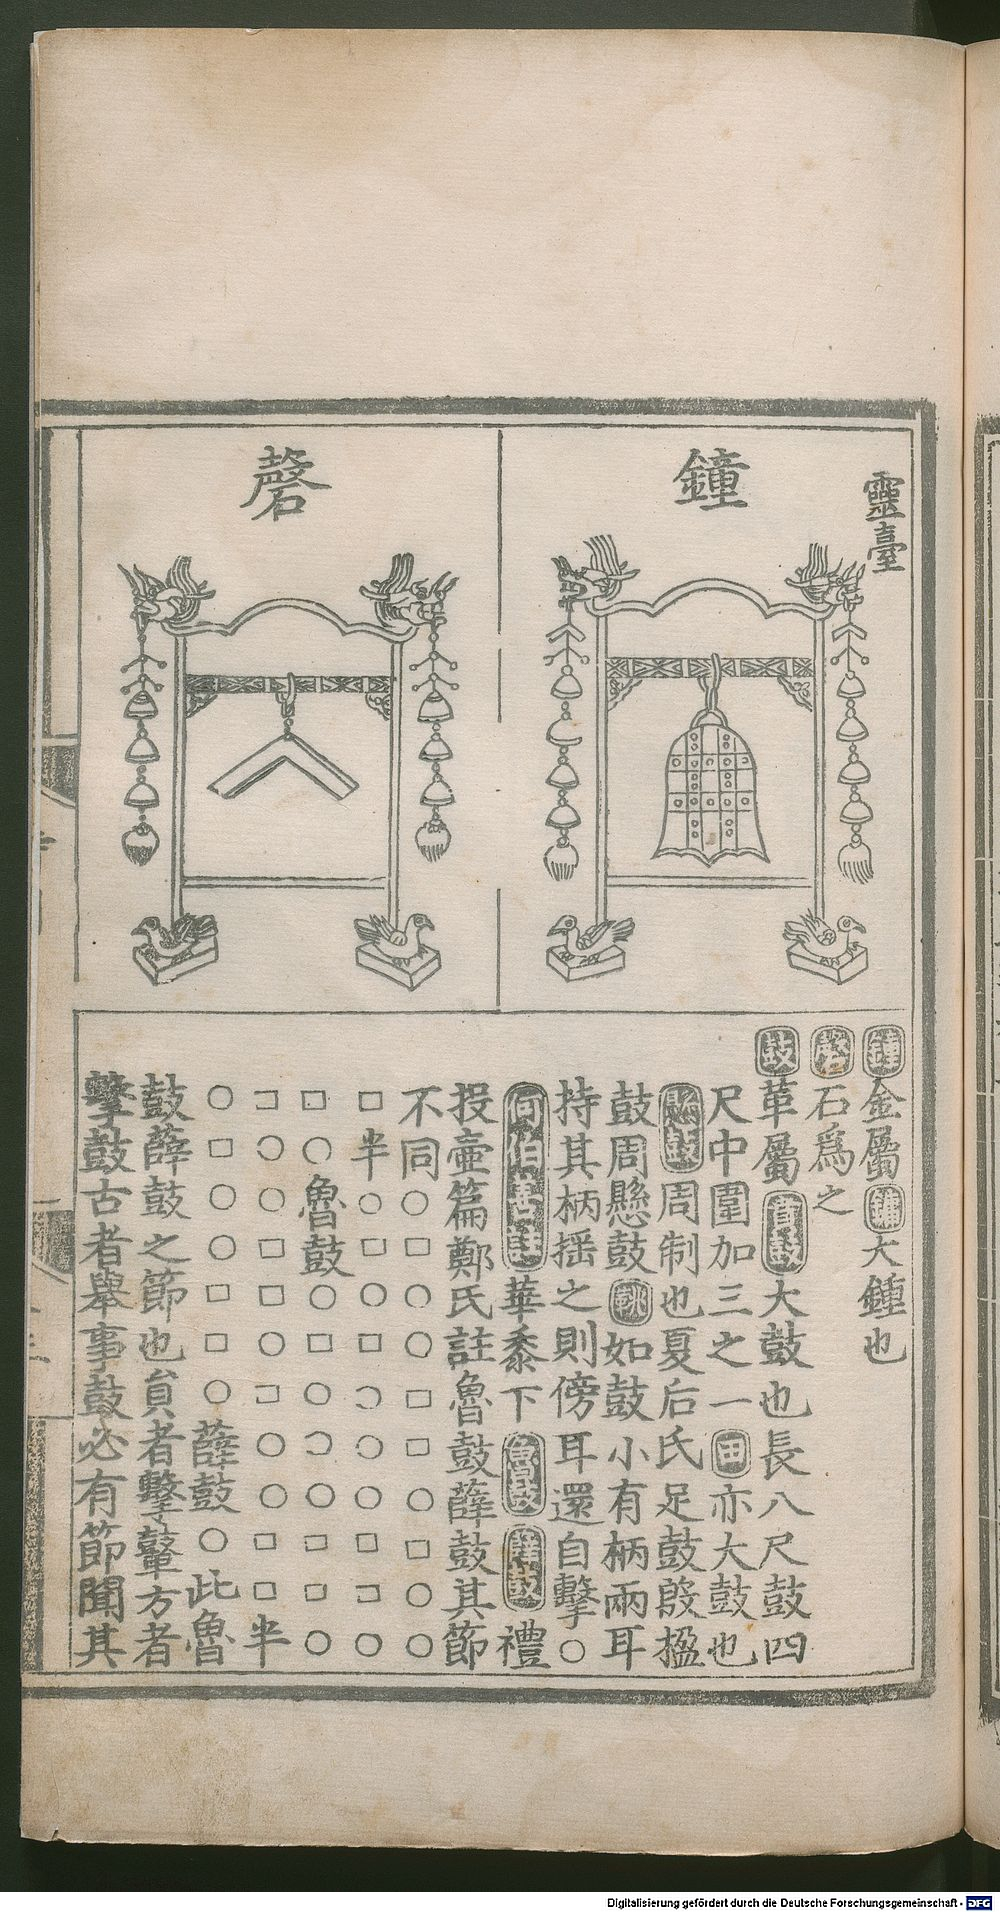 靈臺
鐘
磬
鍾金屬鏞大鍾也
磬石爲之
鼓革屬賁鼓大鼓也長八尺鼓四
尺中圍加三之一田亦大鼓也
懸鼓周制也夏后氏足鼓殷楹
鼓周懸鼓鼗如鼓小有柄兩耳
持其柄揺之則傍耳還自擊○
何伯善註華黍下魯鼓薛鼓禮
投壺篇鄭氏註魯鼓薛鼓其節
不同○□○○□□○□○○
□半○□○□○○○□□○
□○魯鼓○□○○○□□○
□○○□□○□○○□□半
○□○○□□○薛鼓○此魯
鼓薛鼓之節也負者擊鼙方者
擊鼓古者舉事鼓必有節聞其
Digitalisierung gefördert durch die Deutsche Forschungsgemeinschaft - DFG